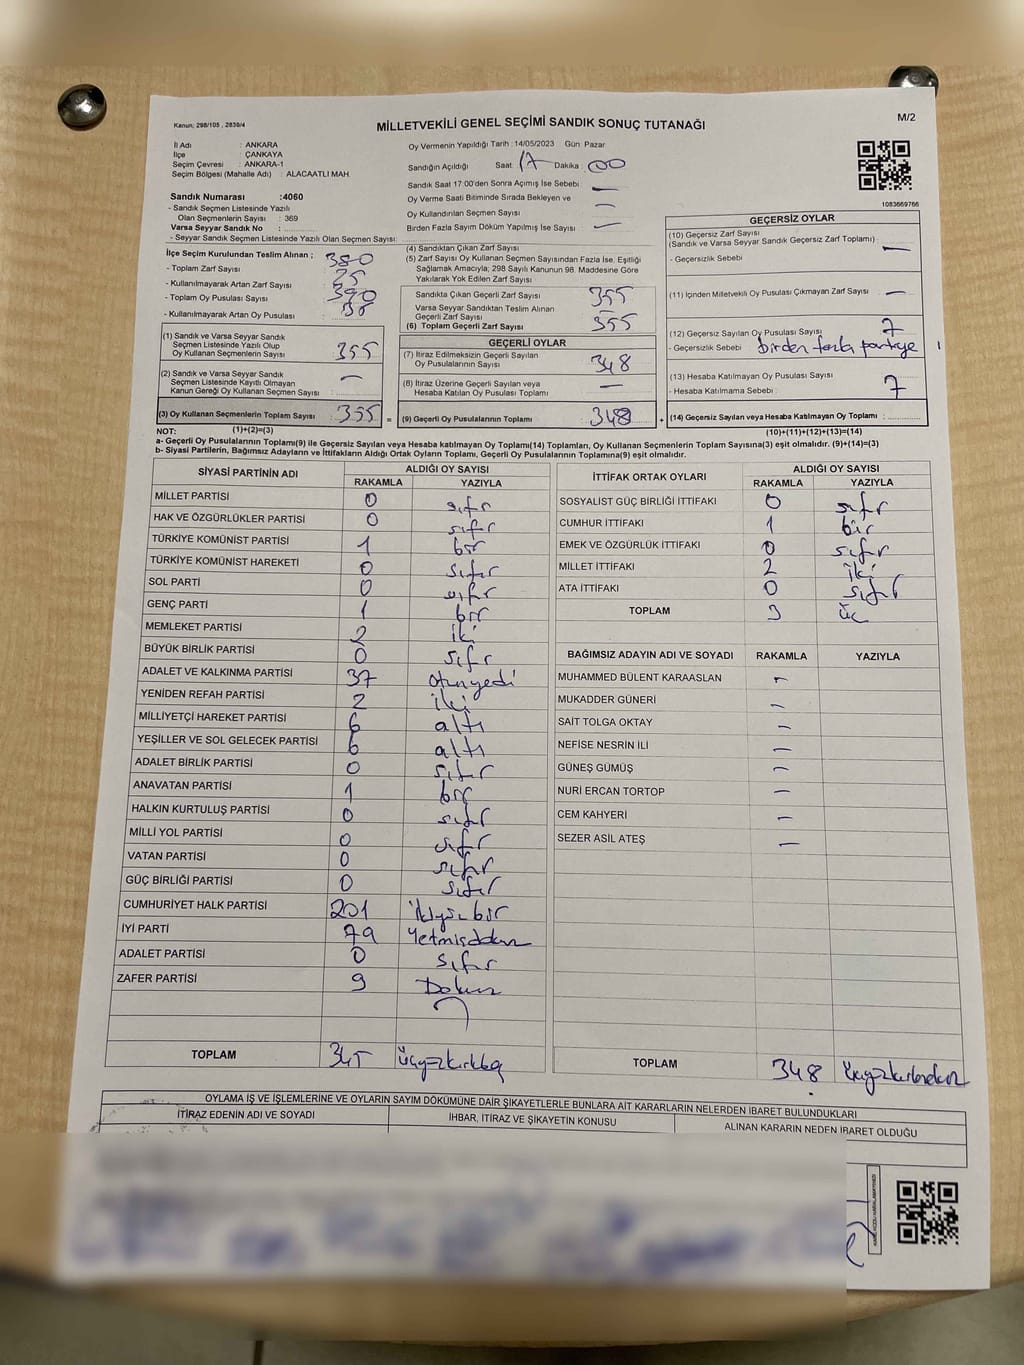 Kanun; 298/105 , 2839/4
MİLLETVEKİLİ GENEL SEÇİMİ SANDIK SONUÇ TUTANAĞI
M/2
İl Adı : ANKARA
İlçe : ÇANKAYA
Seçim Çevresi : ANKARA-1
Seçim Bölgesi (Mahalle Adı) : ALACAATLI MAH.
Sandık Numarası :4060
- Sandık Seçmen Listesinde Yazılı
Olan Seçmenlerin Sayısı : 369
Varsa Seyyar Sandık No :
- Seyyar Sandık Seçmen Listesinde Yazılı Olan Seçmen Sayısı:
Oy Vermenin Yapıldığı Tarih :14/05/2023 Gün Pazar
Sandığın Açıldığı Saat 17 Dakika 00
Sandık Saat 17:00'den Sonra Açımış İse Sebebi —
Oy Verme Saati Bitiminde Sırada Bekleyen ve
Oy Kullandırılan Seçmen Sayısı —
Birden Fazla Sayım Döküm Yapılmış İse Sayısı —
1083669766
İlçe Seçim Kurulundan Teslim Alınan ;
- Toplam Zarf Sayısı : 380
- Kullanılmayarak Artan Zarf Sayısı : 25
- Toplam Oy Pusulası Sayısı : 390
- Kullanılmayarak Artan Oy Pusulası :
(1) Sandık ve Varsa Seyyar Sandık
Seçmen Listesinde Yazılı Olup
Oy Kullanan Seçmenlerin Sayısı : 355
(2) Sandık ve Varsa Seyyar Sandık
Seçmen Listesinde Kayıtlı Olmayan
Kanun Gereği Oy Kullanan Seçmen Sayısı : —
(3) Oy Kullanan Seçmenlerin Toplam Sayısı : 355 =
(4) Sandıktan Çıkan Zarf Sayısı
(5) Zarf Sayısı Oy Kullanan Seçmen Sayısından Fazla İse, Eşitliği
Sağlamak Amacıyla; 298 Sayılı Kanunun 98. Maddesine Göre
Yakılarak Yok Edilen Zarf Sayısı
Sandıkta Çıkan Geçerli Zarf Sayısı 355
Varsa Seyyar Sandıktan Teslim Alınan
Geçerli Zarf Sayısı
(6) Toplam Geçerli Zarf Sayısı 355
GEÇERLİ OYLAR
(7) İtiraz Edilmeksizin Geçerli Sayılan
Oy Pusulalarının Sayısı 348
(8) İtiraz Üzerine Geçerli Sayılan veya
Hesaba Katılan Oy Pusulası Toplamı —
(9) Geçerli Oy Pusulalarının Toplamı 348 +
GEÇERSİZ OYLAR
(10) Geçersiz Zarf Sayısı
(Sandık ve Varsa Seyyar Sandık Geçersiz Zarf Toplamı) : —
- Geçersizlik Sebebi :
(11) İçinden Milletvekili Oy Pusulası Çıkmayan Zarf Sayısı : —
(12) Geçersiz Sayılan Oy Pusulası Sayısı : 7
- Geçersizlik Sebebi : birden fazla partiye
(13) Hesaba Katılmayan Oy Pusulası Sayısı :
- Hesaba Katılmama Sebebi : 7
(14) Geçersiz Sayılan veya Hesaba Katılmayan Oy Toplamı :
NOT: (1)+(2)=(3)
(10)+(11)+(12)+(13)=(14)
a- Geçerli Oy Pusulalarının Toplamı(9) ile Geçersiz Sayılan veya Hesaba katılmayan Oy Toplamı(14) Toplamları, Oy Kullanan Seçmenlerin Toplam Sayısına(3) eşit olmalıdır. (9)+(14)=(3)
b- Siyasi Partilerin, Bağımsız Adayların ve İttifakların Aldığı Ortak Oyların Toplamı, Geçerli Oy Pusulalarının Toplamına(9) eşit olmalıdır.
SİYASİ PARTİNİN ADI ALDIĞI OY SAYISI
RAKAMLA YAZIYLA
MİLLET PARTİSİ 0 sıfır
HAK VE ÖZGÜRLÜKLER PARTİSİ 0 sıfır
TÜRKİYE KOMÜNİST PARTİSİ 1 bir
TÜRKİYE KOMÜNİST HAREKETİ 0 sıfır
SOL PARTİ 0 sıfır
GENÇ PARTİ 1 bir
MEMLEKET PARTİSİ 2 iki
BÜYÜK BİRLİK PARTİSİ 0 sıfır
ADALET VE KALKINMA PARTİSİ 37 otuzyedi
YENİDEN REFAH PARTİSİ 2 iki
MİLLİYETÇİ HAREKET PARTİSİ 6 altı
YEŞİLLER VE SOL GELECEK PARTİSİ 6 altı
ADALET BİRLİK PARTİSİ 0 sıfır
ANAVATAN PARTİSİ 1 bir
HALKIN KURTULUŞ PARTİSİ 0 sıfır
MİLLİ YOL PARTİSİ 0 sıfır
VATAN PARTİSİ 0 sıfır
GÜÇ BİRLİĞİ PARTİSİ 0 sıfır
CUMHURİYET HALK PARTİSİ 201 ikiyüzbir
İYİ PARTİ 79 Yetmişdokuz
ADALET PARTİSİ 0 sıfır
ZAFER PARTİSİ 9 Dokuz
TOPLAM 345 üçyüzkırkbeş
İTTİFAK ORTAK OYLARI ALDIĞI OY SAYISI
RAKAMLA YAZIYLA
SOSYALİST GÜÇ BİRLİĞİ İTTİFAKI 0 sıfır
CUMHUR İTTİFAKI 1 bir
EMEK VE ÖZGÜRLÜK İTTİFAKI 0 sıfır
MİLLET İTTİFAKI 2 iki
ATA İTTİFAKI 0 sıfır
TOPLAM 3 üç
BAĞIMSIZ ADAYIN ADI VE SOYADI RAKAMLA YAZIYLA
MUHAMMED BÜLENT KARAASLAN —
MUKADDER GÜNERİ —
SAİT TOLGA OKTAY —
NEFİSE NESRİN İLİ —
GÜNEŞ GÜMÜŞ —
NURİ ERCAN TORTOP —
CEM KAHYERİ —
SEZER ASİL ATEŞ —
TOPLAM 348 üçyüzkırksekiz
OYLAMA İŞ VE İŞLEMLERİNE VE OYLARIN SAYIM DÖKÜMÜNE DAİR ŞİKAYETLERLE BUNLARA AİT KARARLARIN NELERDEN İBARET BULUNDUKLARI
İTİRAZ EDENİN ADI VE SOYADI İHBAR, İTİRAZ VE ŞİKAYETİN KONUSU ALINAN KARARIN NEDEN İBARET OLDUĞU